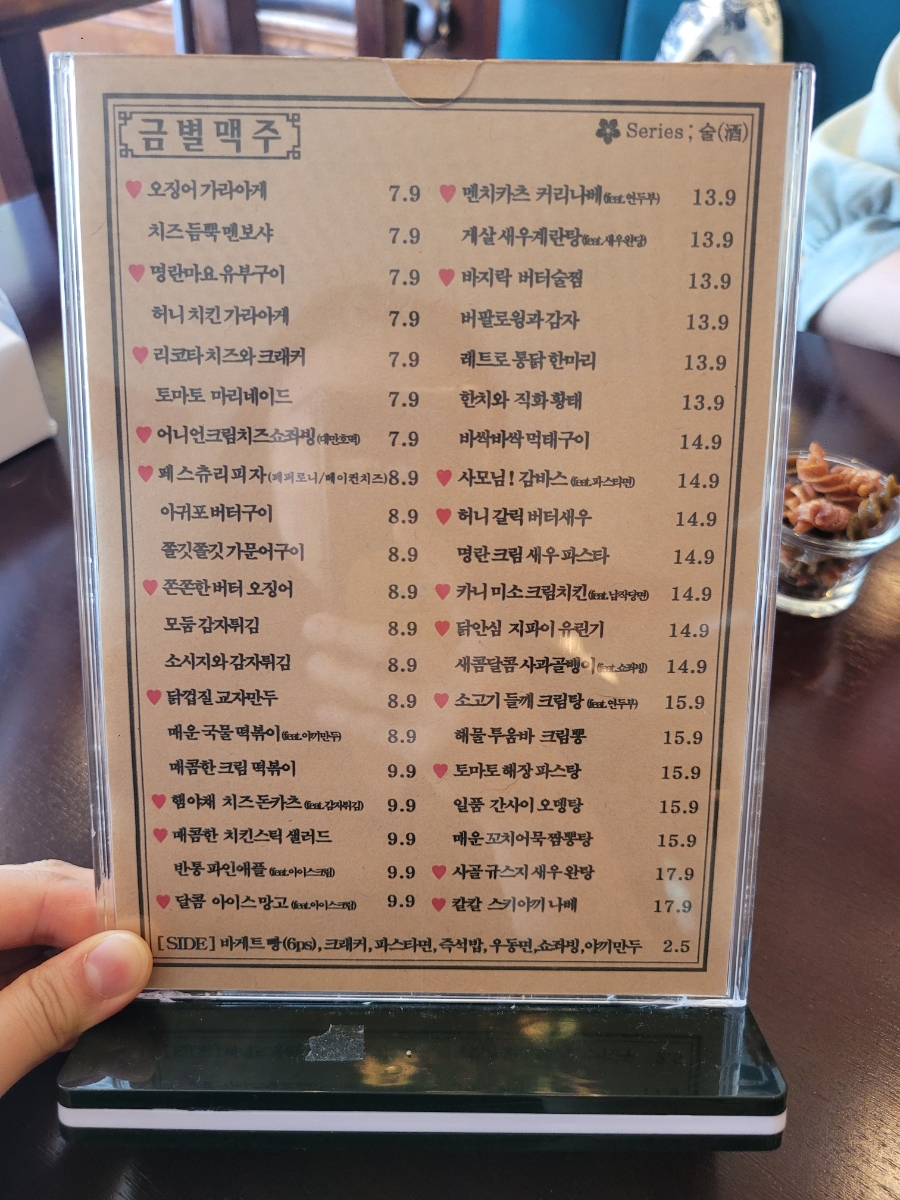 금별맥주
Series ; 술(酒)
♥ 오징어 가라아게 7.9
치즈 듬뿍 멘보샤 7.9
♥ 명란마요 유부구이 7.9
허니 치킨 가라아게 7.9
♥ 리코타 치즈와 크래커 7.9
토마토 마리네이드 7.9
♥ 어니언크림치즈쇼좌빙(대만호떡) 7.9
♥ 페스츄리 피자(페퍼로니/베이컨치즈) 8.9
아귀포 버터구이 8.9
쫄깃쫄깃 가문어구이 8.9
♥ 쫀쫀한 버터 오징어 8.9
모둠 감자튀김 8.9
소시지와 감자튀김 8.9
♥ 닭껍질 교자만두 8.9
매운 국물 떡볶이(feat.야끼만두) 8.9
매콤한 크림 떡볶이 9.9
♥ 햄야채 치즈 돈카츠(feat.감자튀김) 9.9
♥ 매콤한 치킨스틱 샐러드 9.9
반통 파인애플(feat.아이스크림) 9.9
♥ 달콤 아이스 망고(feat.아이스크림) 9.9
♥ 멘치카츠 커리나베(feat.연두부) 13.9
게살 새우계란탕(feat.새우완탕) 13.9
♥ 바지락 버터술찜 13.9
버팔로윙과 감자 13.9
레트로 통닭 한마리 13.9
한치와 직화 황태 13.9
바싹바싹 먹태구이 14.9
♥ 사모님! 감바스(feat.파스타면) 14.9
♥ 허니 갈릭 버터새우 14.9
명란 크림 새우 파스타 14.9
♥ 카니 미소 크림치킨(feat.납작당면) 14.9
♥ 닭안심 지파이 유린기 14.9
새콤달콤 사과골뱅이(feat.쇼좌빙) 14.9
♥ 소고기 들깨 크림탕(feat.연두부) 15.9
해물 투움바 크림뽕 15.9
♥ 토마토 해장 파스탕 15.9
일품 간사이 오뎅탕 15.9
매운 꼬치어묵 짬뽕탕 15.9
♥ 사골 규스지 새우 완탕 17.9
♥ 칼칼 스키야끼 나베 17.9
[SIDE] 바게트 빵(6ps), 크래커, 파스타면, 즉석밥, 우동면, 쇼좌빙, 야끼만두 2.5